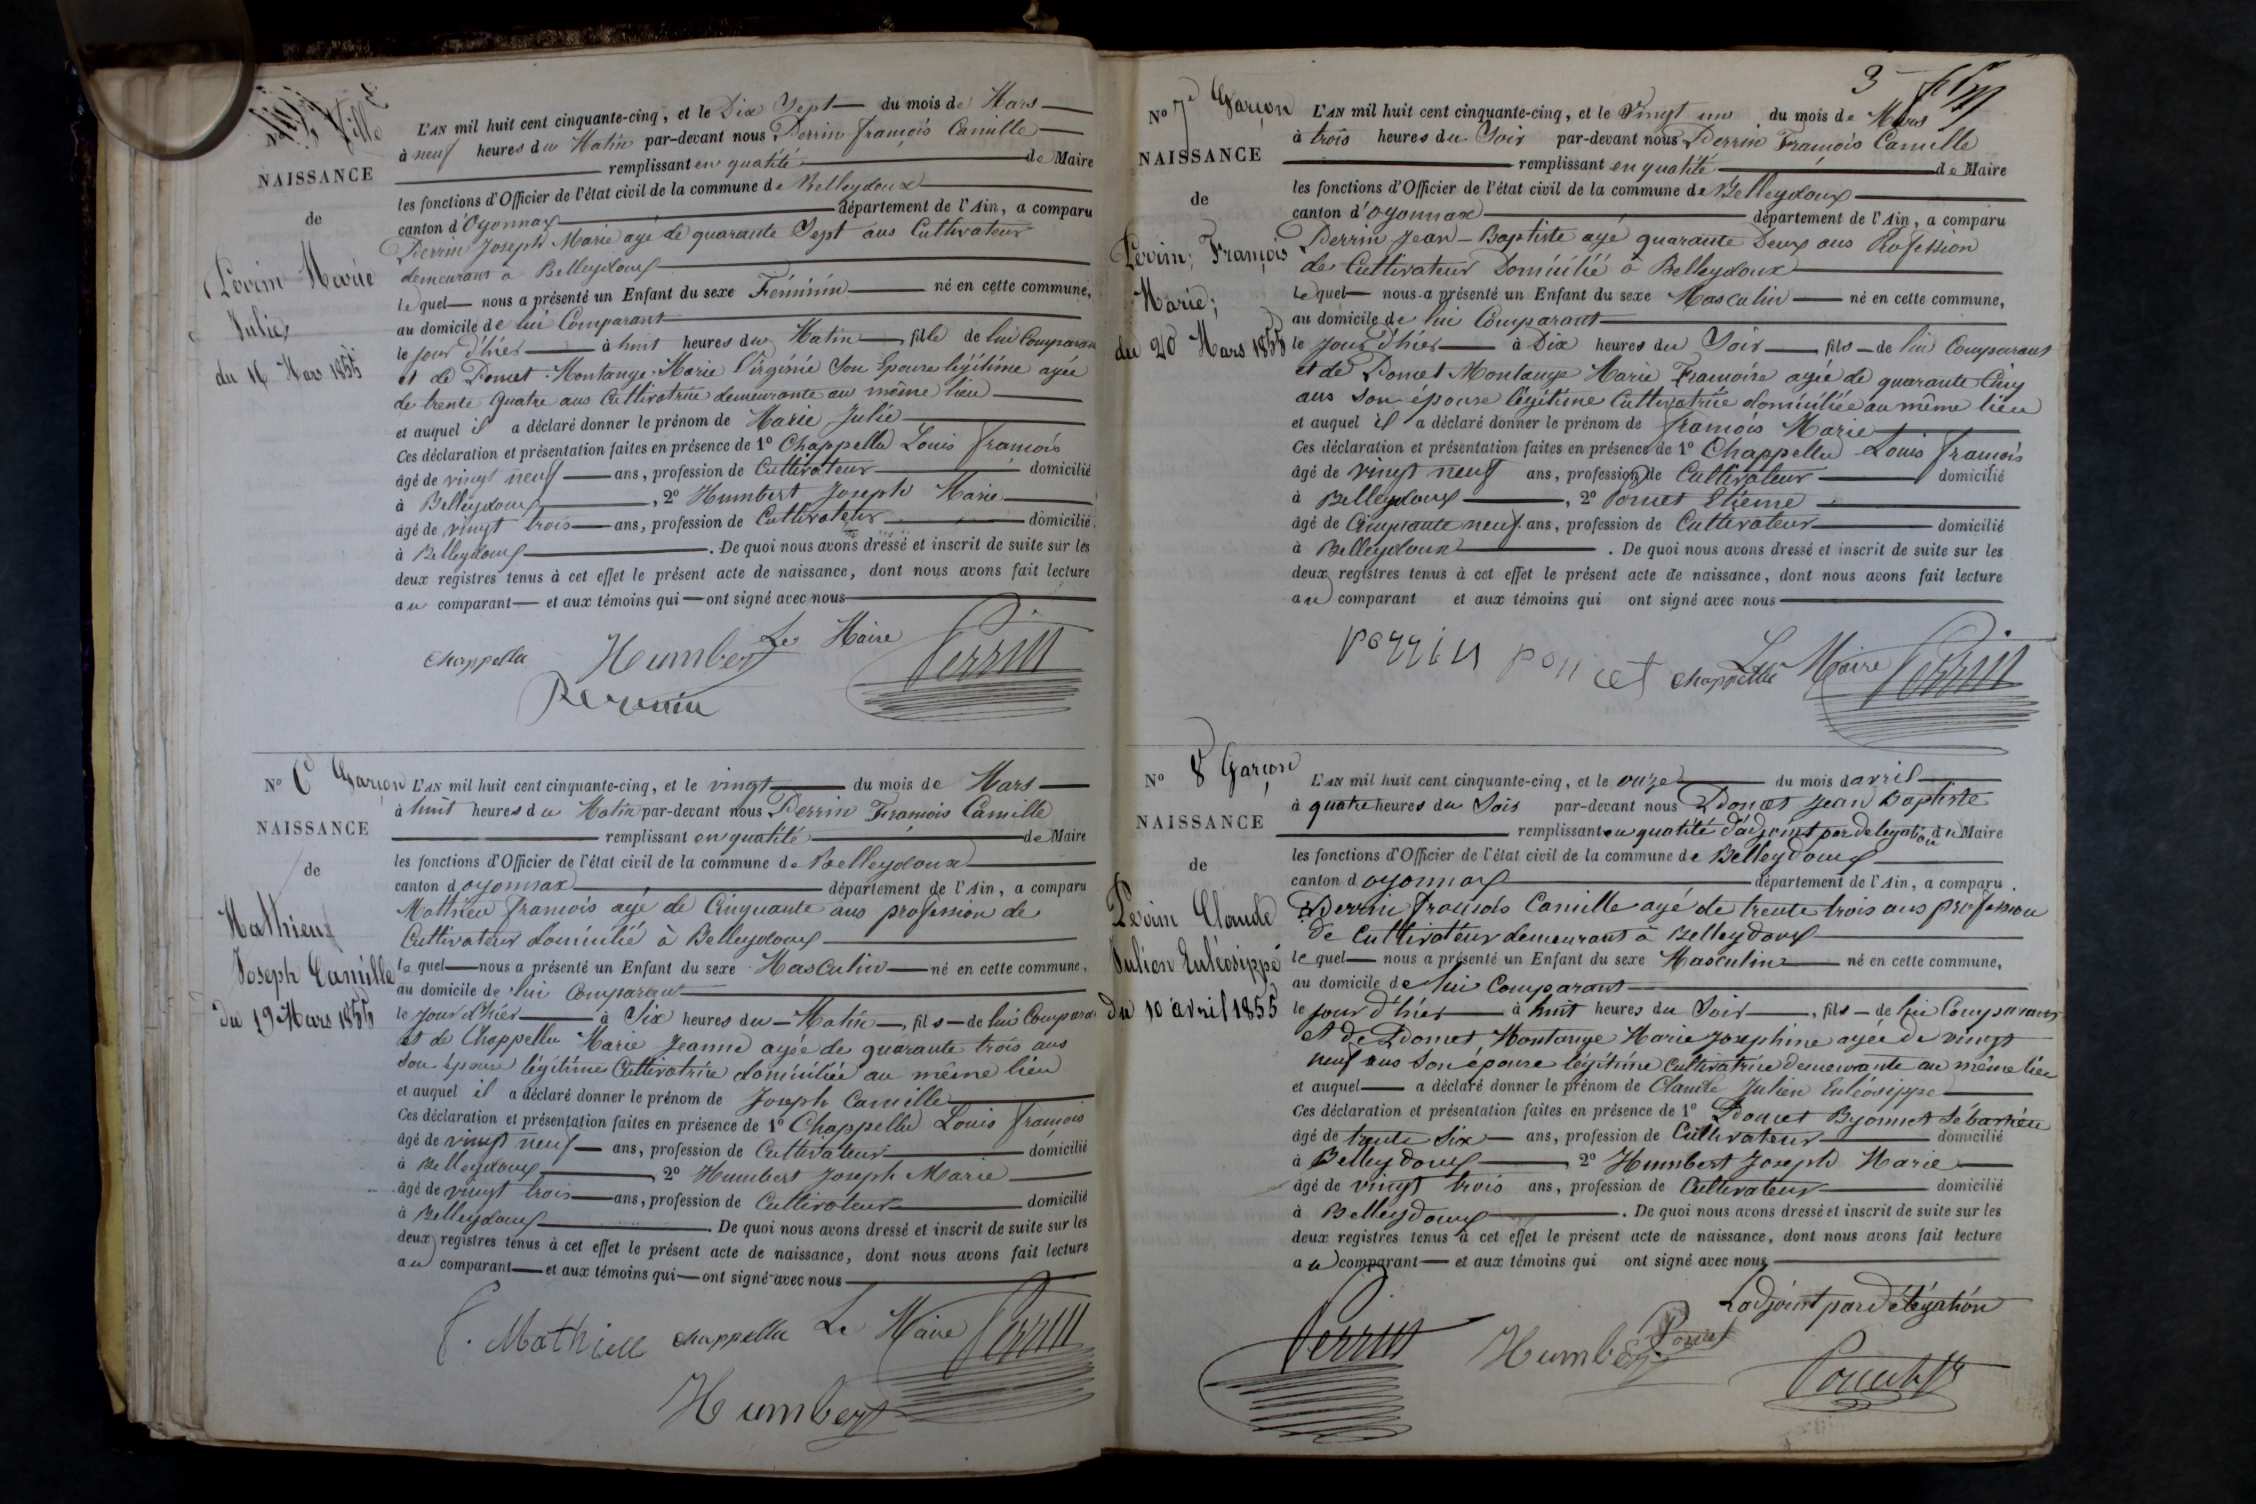 Fille
NAISSANCE
de
Perrin Marie
Julie
du 16 Mars 1855
L'AN mil huit cent cinquante-cinq, et le Dix Sept du mois de Mars
à neuf heures du Matin par-devant nous Perrin françois Camille
remplissant en qualité de Maire
les fonctions d'Officier de l'état civil de la commune de Belleydoux
canton d'Oyonnax département de l'Ain, a comparu
Perrin Joseph Marie agé de quarante Sept ans Cultivateur
demeurant à Belleydoux
lequel nous a présenté un Enfant du sexe Féminin né en cette commune,
au domicile de lui Comparant
le jour d'hier à huit heures du Matin, fille de lui Comparant
et de Poncet Montange Marie Virginie Son Epouse légitime agée
de trente quatre ans Cultivatrice demeurante au même lieu
et auquel il a déclaré donner le prénom de Marie Julie
Ces déclaration et présentation faites en présence de 1º Chappellu Louis françois
âgé de vingt neuf ans, profession de Cultivateur domicilié
à Belleydoux, 2º Humbert Joseph Marie
âgé de vingt trois ans, profession de Cultivateur domicilié
à Belleydoux. De quoi nous avons dressé et inscrit de suite sur les
deux registres tenus à cet effet le présent acte de naissance, dont nous avons fait lecture
au comparant et aux témoins qui ont signé avec nous
chappellu Humbert Le Maire Perrin
Perrin
Nº 6 Garçon
NAISSANCE
de
Mathieu
Joseph Camille
du 19 Mars 1855
L'AN mil huit cent cinquante-cinq, et le vingt du mois de Mars
à huit heures du Matin par-devant nous Perrin François Camille
remplissant en qualité de Maire
les fonctions d'Officier de l'état civil de la commune de Belleydoux
canton d oyonnax département de l'Ain, a comparu
Mathieu françois agé de Cinquante ans profession de
Cultivateur domicilié à Belleydoux
lequel nous a présenté un Enfant du sexe Masculin né en cette commune,
au domicile de lui Comparant
le jour d'hier à Six heures du Matin, fils de lui Comparant
et de Chappellu Marie Jeanne agée de quarante trois ans
son épouse légitime Cultivatrice domiciliée au même lieu
et auquel il a déclaré donner le prénom de Joseph Camille
Ces déclaration et présentation faites en présence de 1º Chappellu Louis françois
âgé de vingt neuf ans, profession de Cultivateur domicilié
à Belleydoux, 2º Humbert Joseph Marie
âgé de vingt trois ans, profession de Cultivateur domicilié
à Belleydoux. De quoi nous avons dressé et inscrit de suite sur les
deux registres tenus à cet effet le présent acte de naissance, dont nous avons fait lecture
au comparant et aux témoins qui ont signé avec nous
f. Mathieu chappellu Le Maire Perrin
Humbert
3
Nº 7 Garçon
NAISSANCE
de
Perrin, François
Marie;
du 20 Mars 1855
L'AN mil huit cent cinquante-cinq, et le Vingt un du mois de Mars
à trois heures du Soir par-devant nous Perrin François Camille
remplissant en qualité de Maire
les fonctions d'Officier de l'état civil de la commune de Belleydoux
canton d'oyonnax département de l'Ain, a comparu
Perrin Jean-Baptiste agé quarante Deux ans Profession
de Cultivateur Domicilié à Belleydoux
lequel nous a présenté un Enfant du sexe Masculin né en cette commune,
au domicile de lui Comparant
le jour d'hier à Dix heures du Soir, fils de lui Comparant
et de Poncet Montange Marie Françoise agée de quarante Cinq
ans Son épouse légitime Cultivatrice domiciliée au même lieu
et auquel il a déclaré donner le prénom de françois Marie
Ces déclaration et présentation faites en présence de 1º Chappellu Louis françois
âgé de vingt neuf ans, profession de Cultivateur domicilié
à Belleydoux, 2º Poncet Etienne
âgé de Cinquante neuf ans, profession de Cultivateur domicilié
à Belleydoux. De quoi nous avons dressé et inscrit de suite sur les
deux registres tenus à cet effet le présent acte de naissance, dont nous avons fait lecture
au comparant et aux témoins qui ont signé avec nous
Perrin poncet chappellu Le Maire Perrin
Nº 8 Garçon
NAISSANCE
de
Perrin Claude
Julien Euléosippe
du 10 avril 1855
L'AN mil huit cent cinquante-cinq, et le onze du mois d avril
à quatre heures du Soir par-devant nous Poncet Jean Baptiste
remplissant en qualité d'adjoint par delegation du Maire
les fonctions d'Officier de l'état civil de la commune de Belleydoux
canton d oyonnax département de l'Ain, a comparu
Perrin françois Camille agé de trente trois ans profession
de Cultivateur demeurant à Belleydoux
lequel nous a présenté un Enfant du sexe Masculin né en cette commune,
au domicile de lui Comparant
le jour d'hier à huit heures du Soir, fils de lui Comparant
et de Poncet Montange Marie Josephine agée de vingt
neuf ans Son épouse légitime Cultivatrice demeurante au même lieu
et auquel a déclaré donner le prénom de Claude Julien Euléosippe
Ces déclaration et présentation faites en présence de 1º Poncet Byonnet Sébastien
âgé de trente Six ans, profession de Cultivateur domicilié
à Belleydoux, 2º Humbert Joseph Marie
âgé de vingt trois ans, profession de Cultivateur domicilié
à Belleydoux. De quoi nous avons dressé et inscrit de suite sur les
deux registres tenus à cet effet le présent acte de naissance, dont nous avons fait lecture
au comparant et aux témoins qui ont signé avec nous
Ladjoint par délégation
Perrin Humbert Poncet